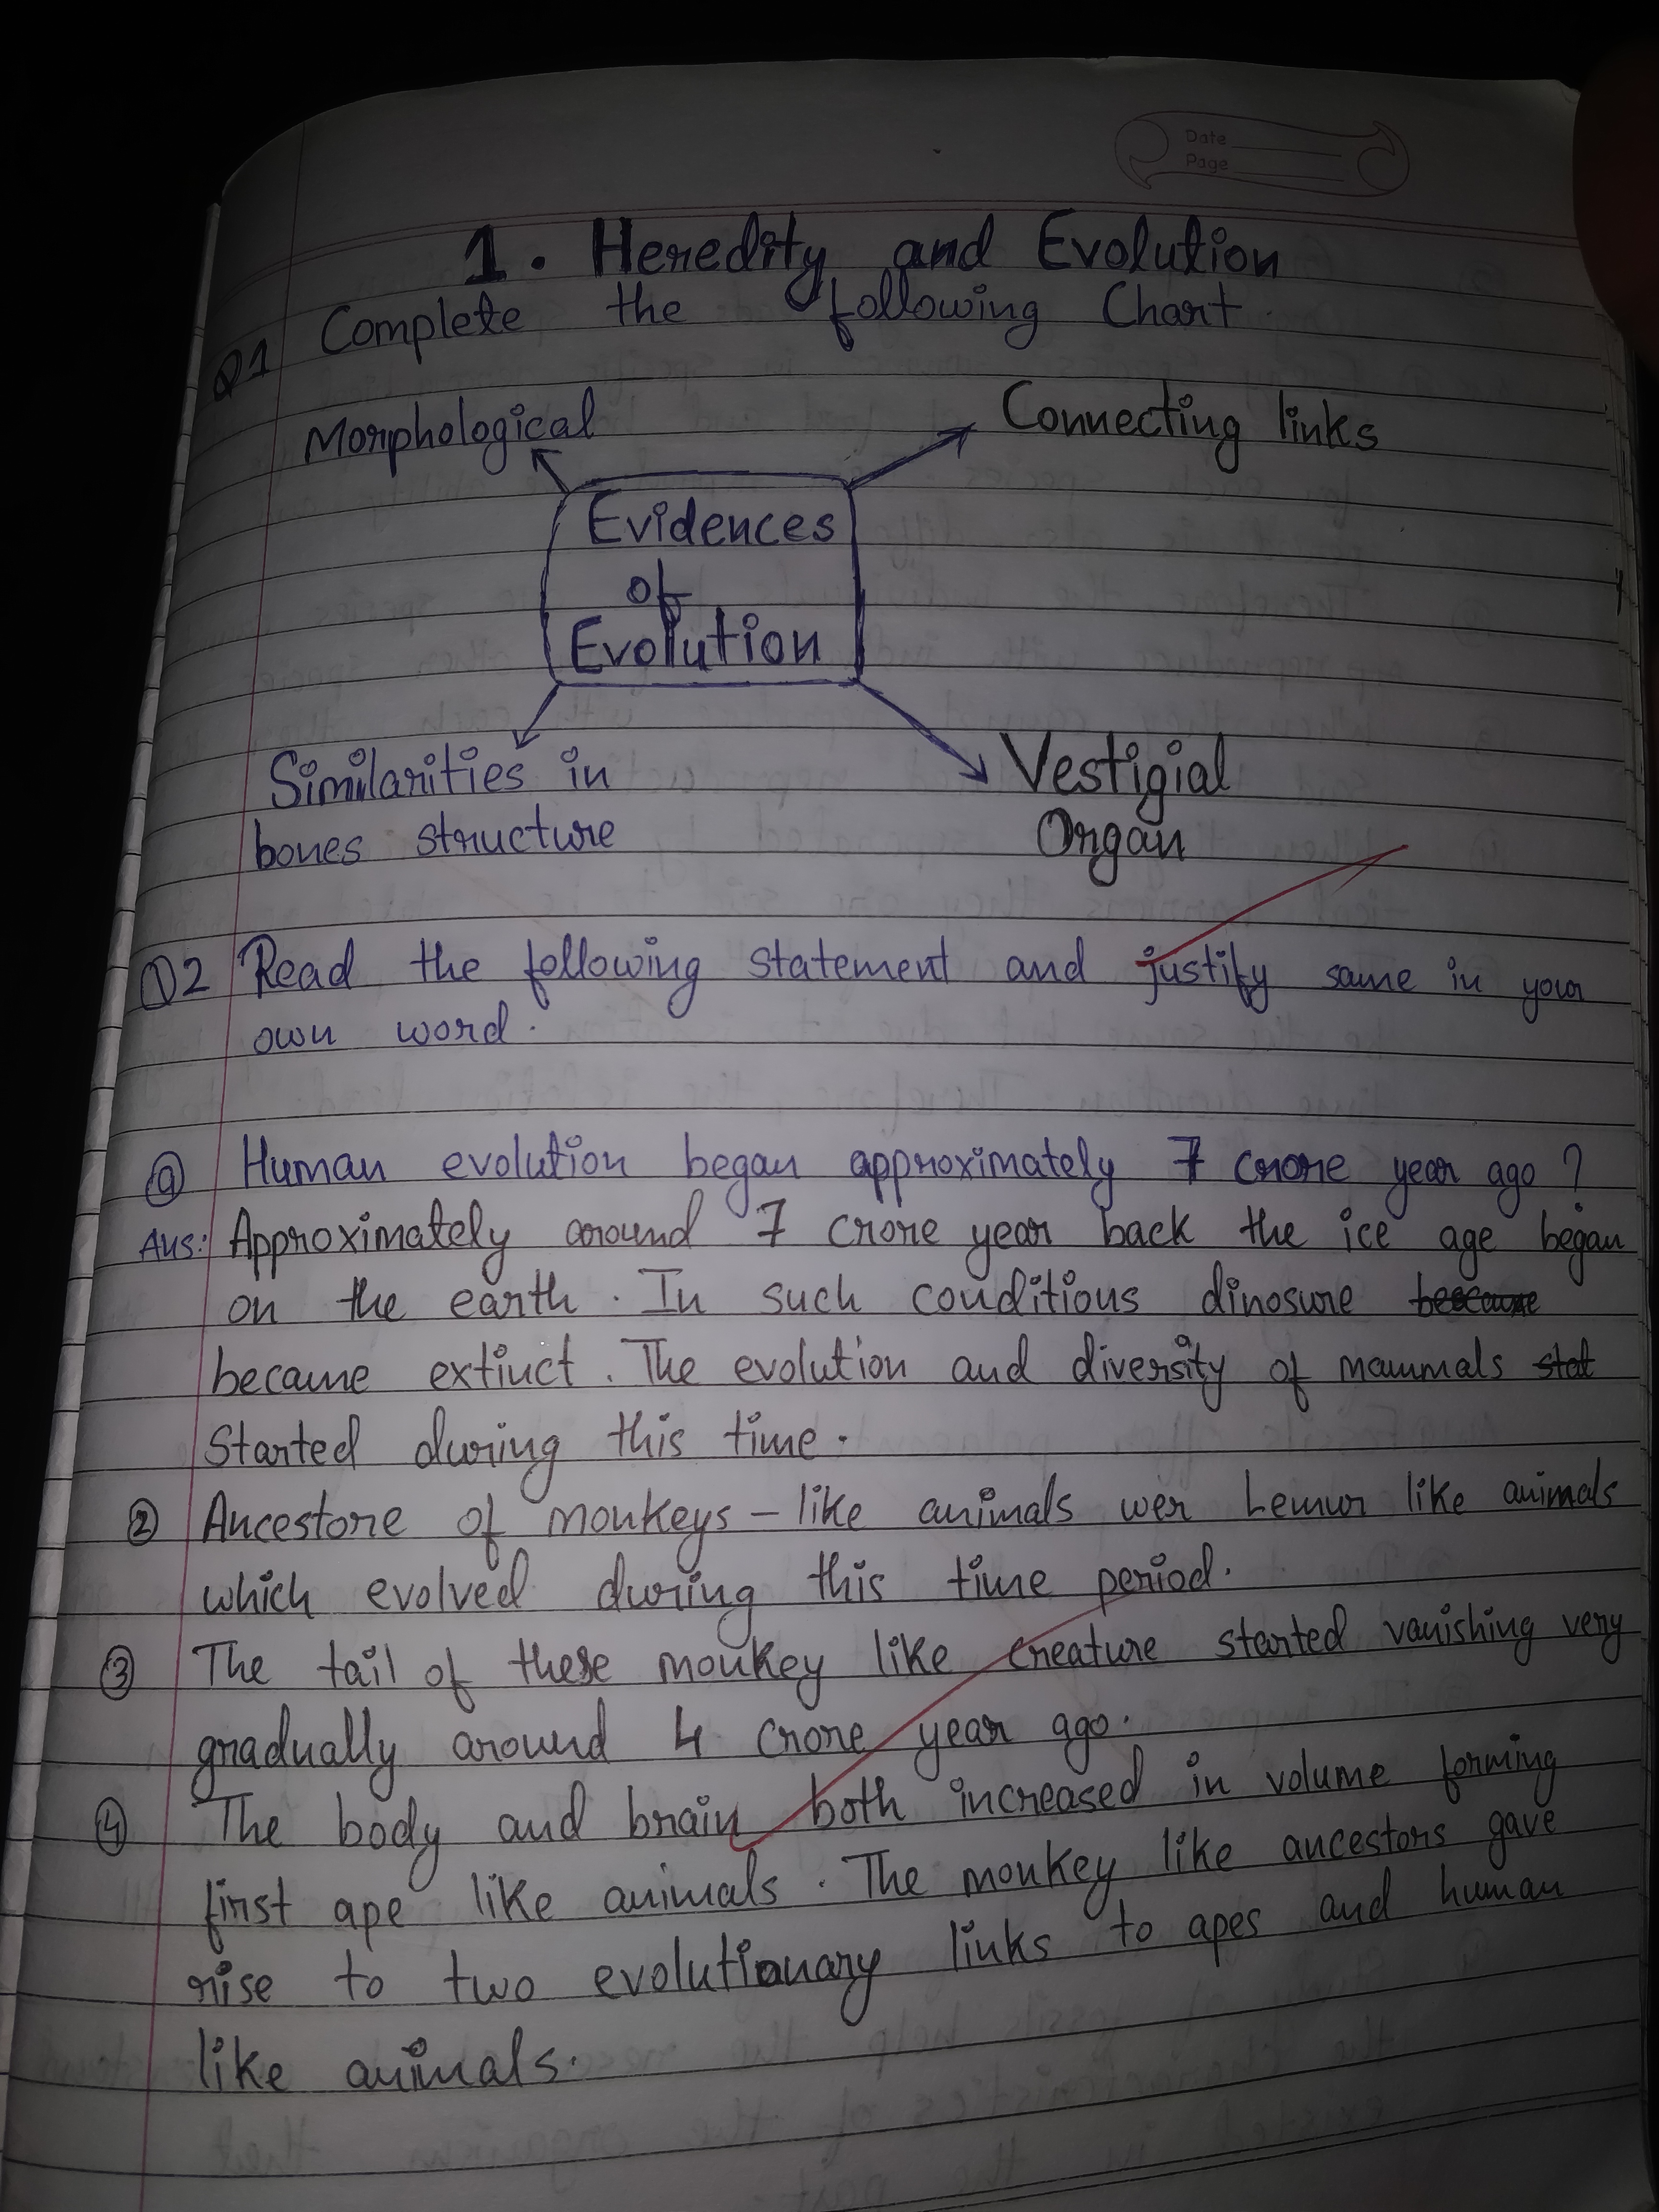 Date
Page
1. Heredity and Evolution
Q1 Complete the following Chart.
Morphological
Connecting links
Evidences
of
Evolution
Similarities in
bones structure
Vestigial
Organ
Q2 Read the following statement and justify same in your
own word.
a Human evolution began approximately 7 crore year ago ?
Ans: Approximately around 7 crore year back the ice age began
on the earth. In such conditions dinosure
became extinct. The evolution and diversity of mammals stat
Started during this time.
2 Ancestore of monkeys - like animals wer Lemur like animals
which evolved during this time period.
3 The tail of these monkey like creature started vanishing very
gradually around 4 crore year ago.
4 The body and brain both increased in volume forming
first ape like animals. The monkey like ancestors gave
rise to two evolutionary links to apes and human
like animals.